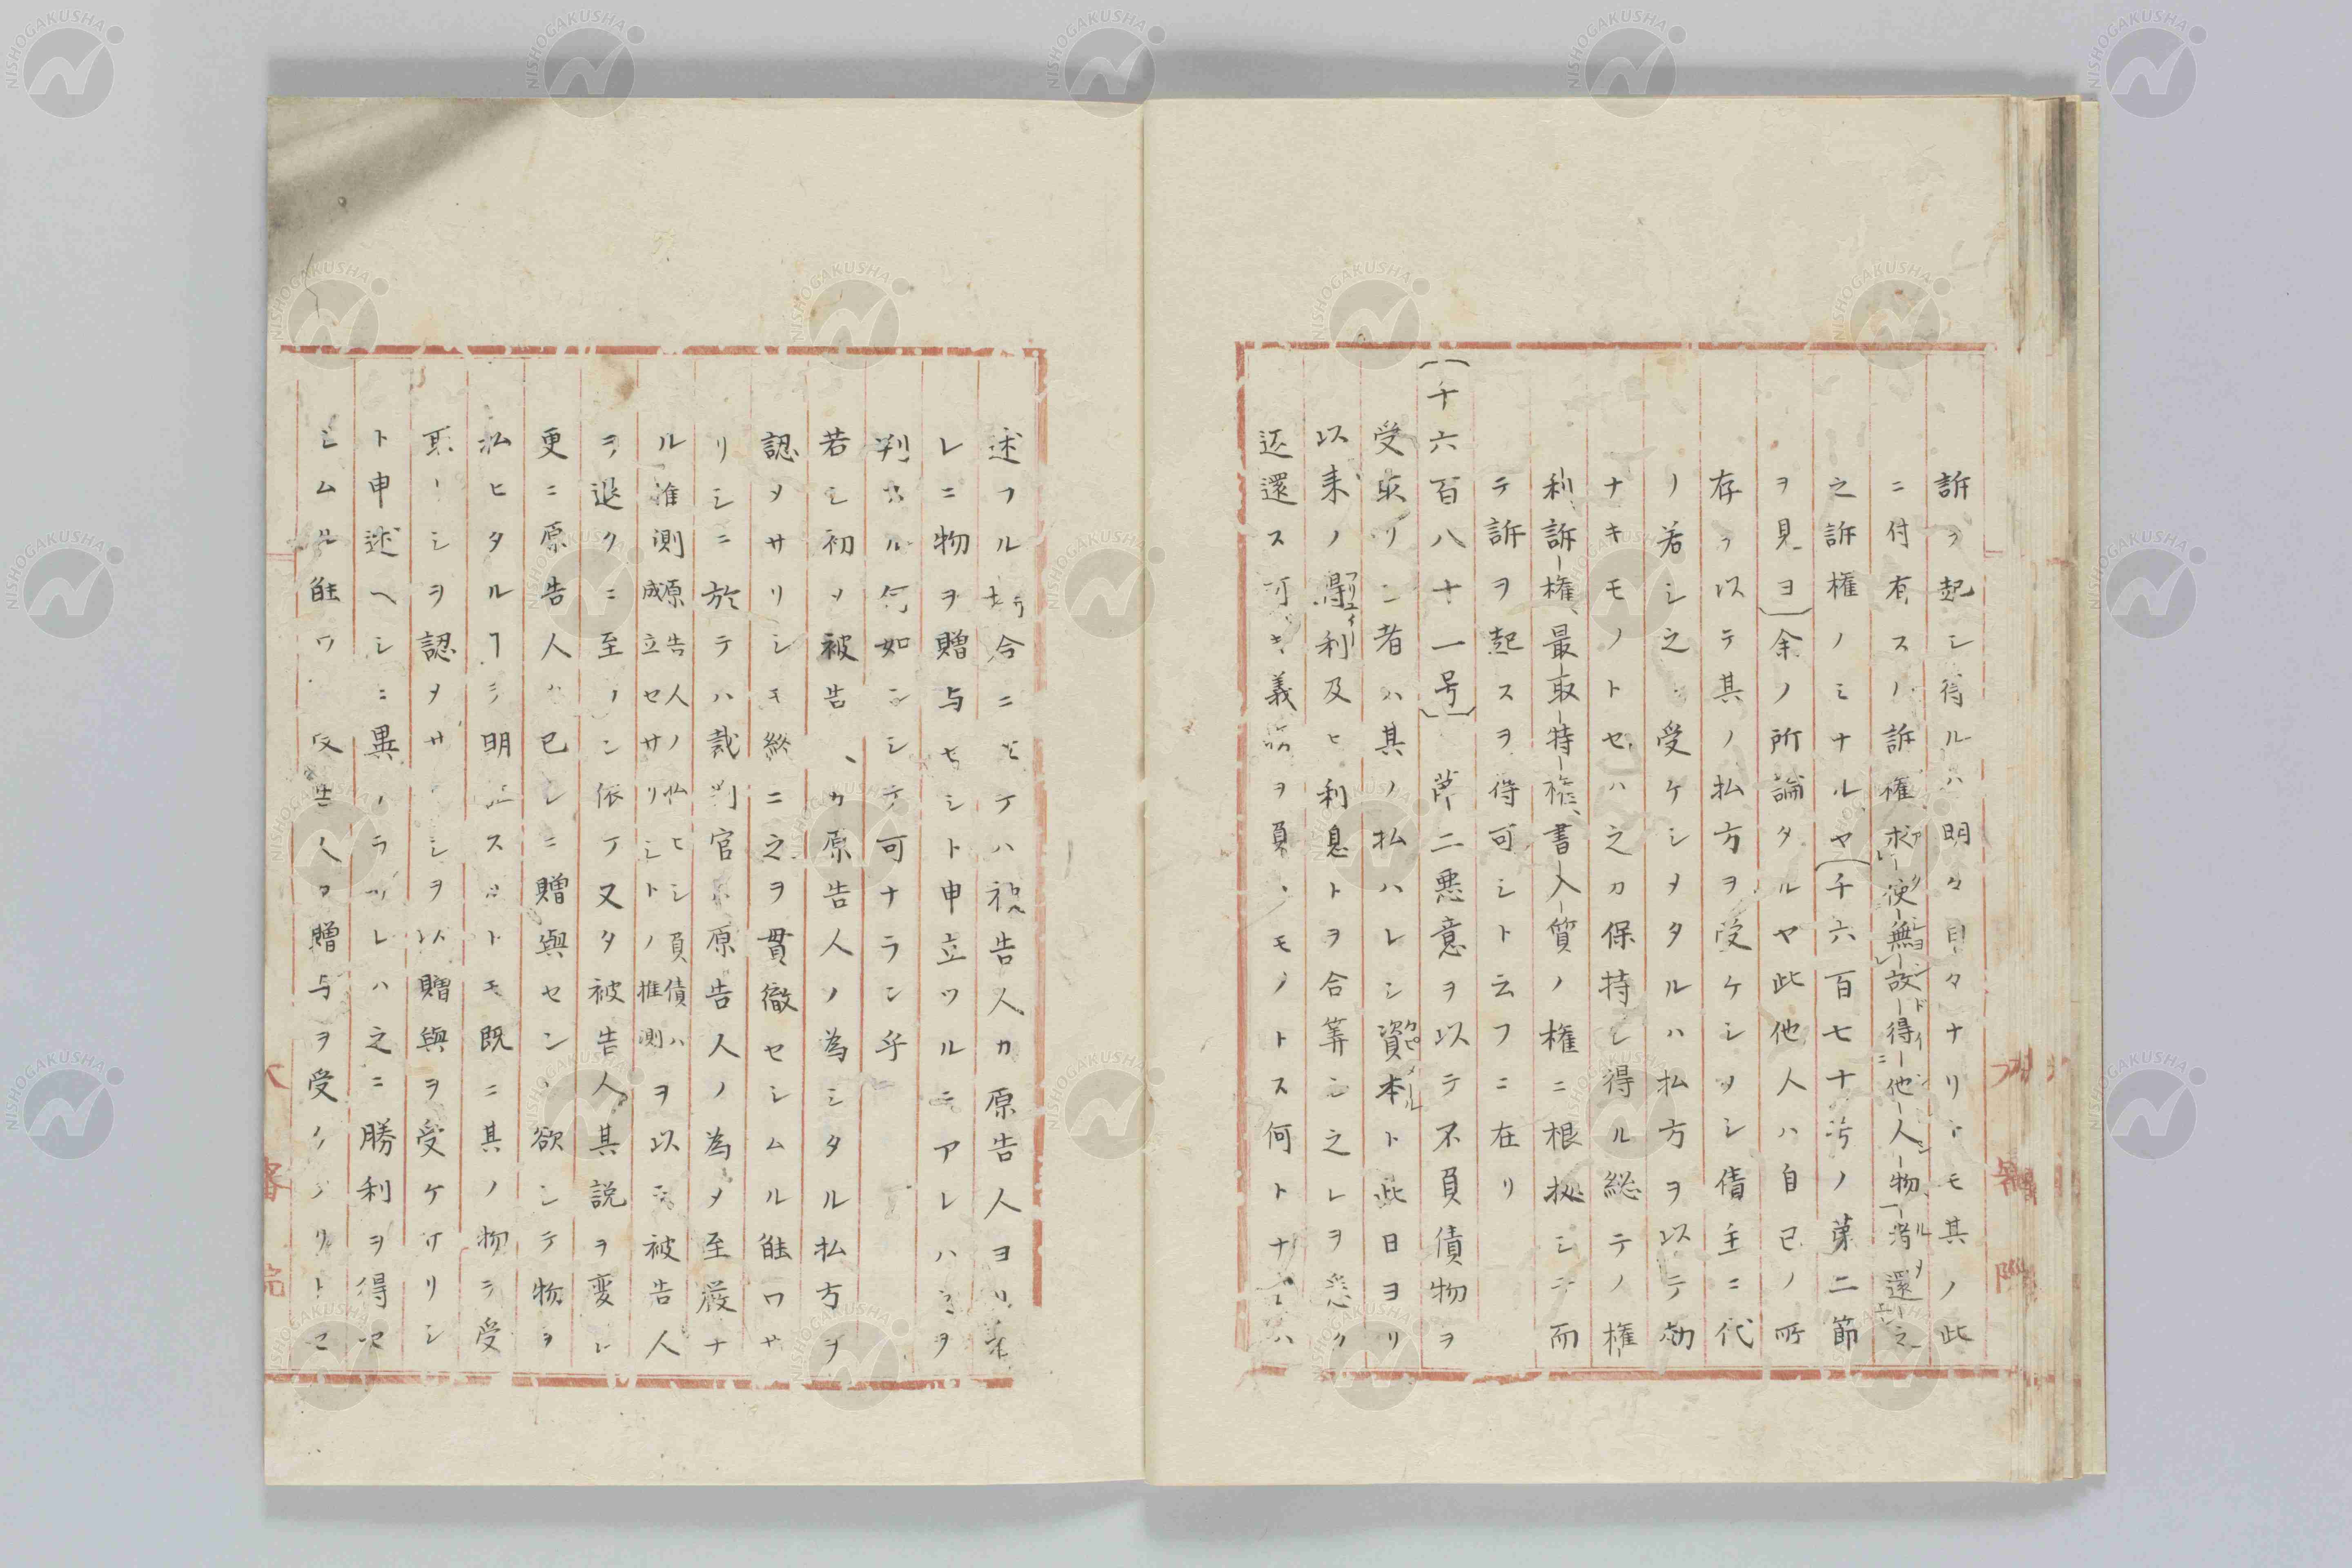 訴ヲ起シ得ルハ明々白々ナリトモ其ノ此
ニ付有スル訴権求使無故得他人物者還之
之訴権ノミナルヤ(千六百七十号ノ第二節
ヲ見ヨ)余ノ所論タルヤ此他人ハ自己ノ所
存ヲ以テ其ノ払方ヲ受ケシメシ債主ニ代
ノ若シ之ヲ受ケシメタルハ払方ヲ以テ効
ナキモノトセハ之カ保持シ得ル総テノ権
利訴権、最取特権、書入質ノ権ニ根拠シテ而
テ訴ヲ起スヲ得可シト云フニ在リ
(千六百八十一号) 第二悪意ヲ以テ不負債物ヲ
受取リシ者ハ其ノ払ハレシ資本ト此日ヨリ
以来ノ得利及ヒ利息トヲ合算シ之レヲ悉ク
返還ス可キ義務ヲ負フモノトス何トナレハ
述フル場合ニ
レニ物ヲ贈与セシト申立ツルニアレハ之ヲ
判スル何如ニシテ可ナランヤ
若シ初メ被告人カ原告人ノ為シタル払方ヲ
認メサリシモ終ニ之ヲ貫徹セシムル能ワサ
リシニ於テハ裁判官ハ原告人ノ為メ至厳ナ
ル推測原告人ノ払ヒシ負債ハ成立セサリシトノ推測ヲ以テ被告人
ヲ退クニ至ラン依テ又タ被告人其説ヲ変シ
更ニ原告人ハ已レニ贈與セント欲シテ物ヲ
払ヒタルヿヲ明証スルトモ既ニ其ノ物ヲ受
取リシヲ認メサリシヲ以贈與ヲ受ケサリシ
ト申述ヘシニ異ナラサレハ之ニ勝利ヲ得セ
シムル能ワス
大審院